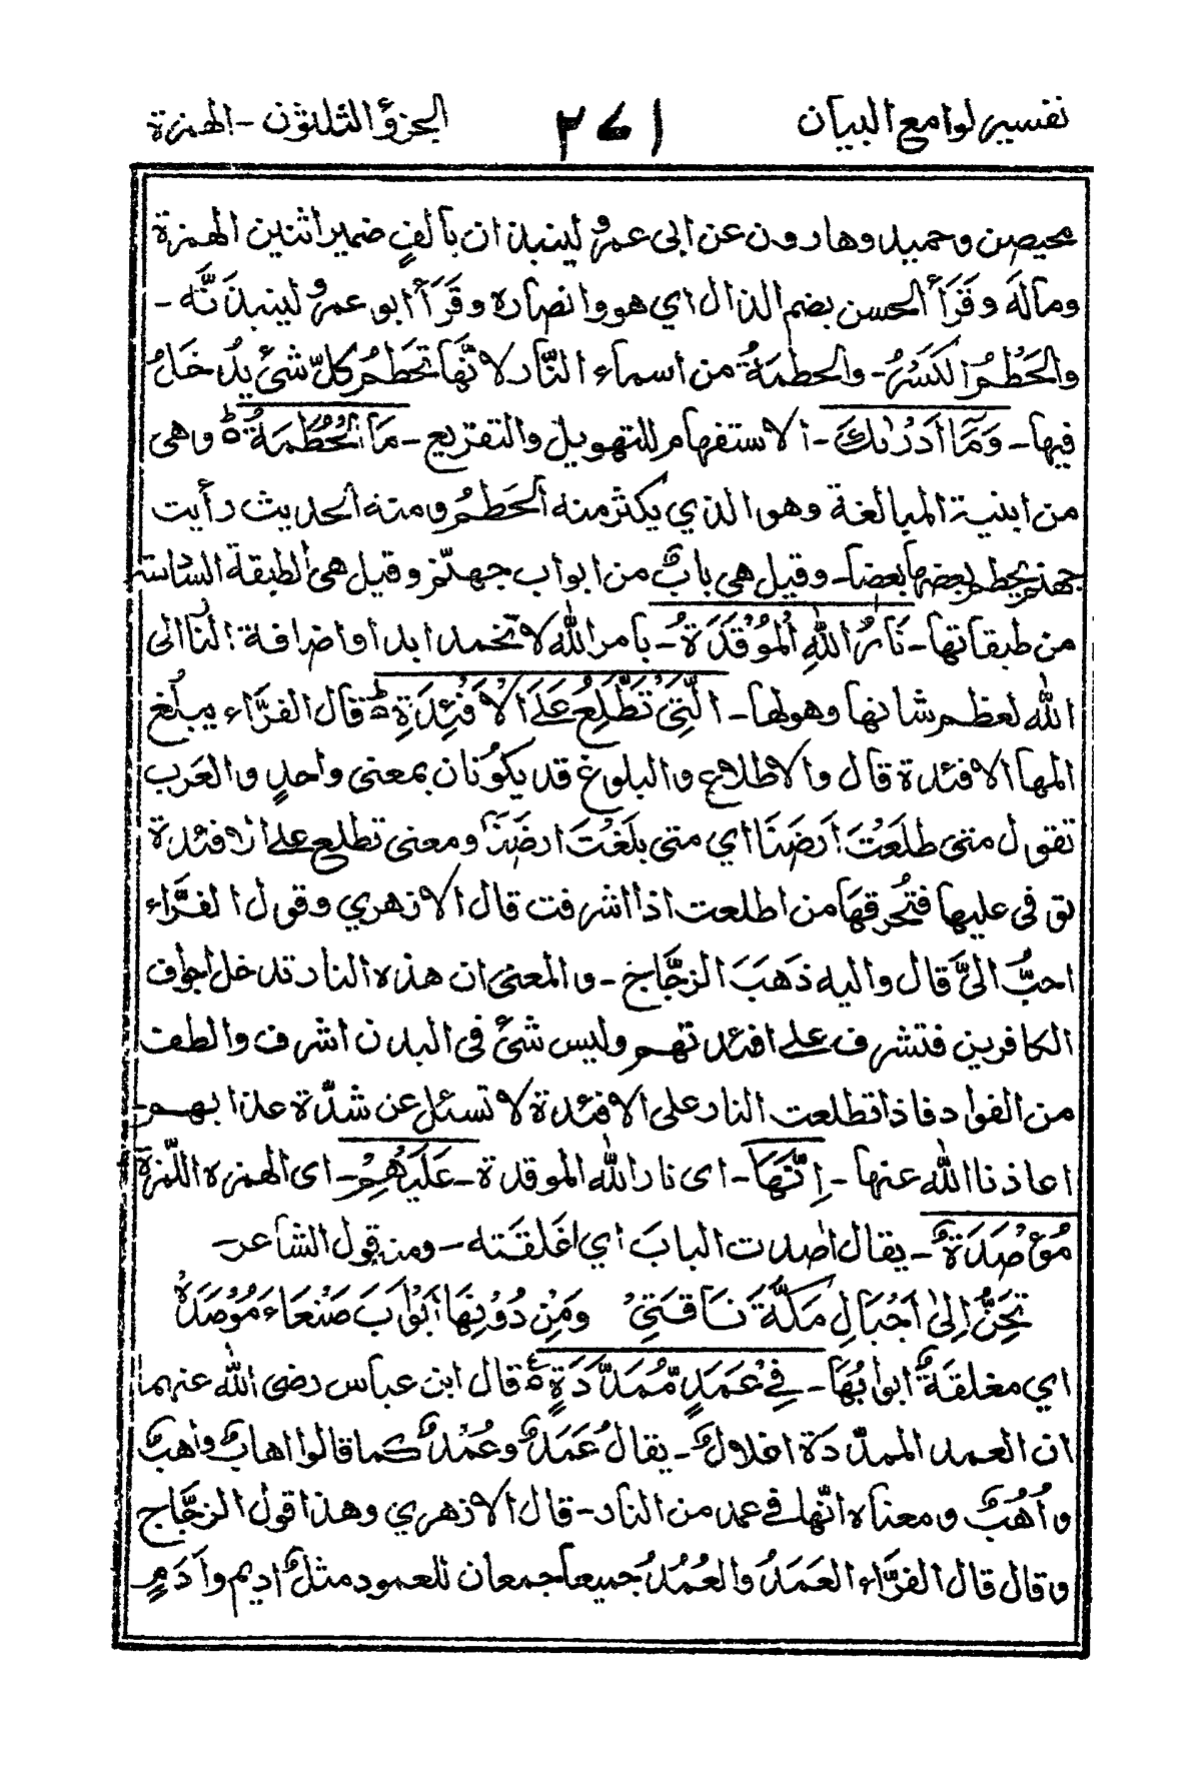 تفسير لوامع البيان ٢٧١ الجزؤ الثلثون - الهمزة
محيصن وحميد وهارون عن ابى عمرو لينبذان بألف ضمير اثنين الهمزة
وماله وقَرَأ الحسن بضم الذال اي هو وانصاره وقَرَأ ابو عمرو لينبذنَّه -
والحَطْمُ الكَسْرُ - والحطمةُ من اسماء النّار لانّها تحطمُ كلّ شئ يدُخَلُ
فيها - وَمَا أَدْرٰىكَ - الاستفهام للتهويل والتقريع - مَا الْحُطَمَةُ ۗ وهى
من ابنية المبالغة وهو الذي يكثر منه الحَطمُ ومنه الحديث رأيت
جهنم يحطم بعضها بعضا - وقيل هى بابٌ من ابواب جهنّم وقيل هى الطبقة السّادسة
من طبقاتها - نَارُ اللّٰهِ الْمُوْقَدَةُ - بامر اللّٰه لا تخمد ابدا واضافة النار الى
اللّٰه لعظم شانها وهولها - الَّتِىْ تَطَّلِعُ عَلَى الْاَفْئِدَةِ ۗ قال الفرَّاء يبلُغ
المها الافئدة قال والاطلاع والبلوغ قد يكونان بمعنى واحدٍ والعَرب
تقول متى طلَعْتَ اَرضَنَا اي متى بلَغْتَ ارضَنَا ومعنى تطلع على الافئدة
توفى عليها فتُحرقهَا من اطلعت اذا اشرفت قال الازهري وقول الفرَّاء
احبُّ الىَّ قال واليه ذهَبَ الزجَّاج - والمعنى ان هذه النار تدخل اجواف
الكافرين فتشرف على افئدتهم وليس شئ فى البدن اشرف والطف
من الفواد فاذا تطلعت النار على الافئدة لا تسئل عن شدّة عذابهم -
اعاذنا اللّٰه عنها - اِنَّهَا - اى نار اللّٰه الموقدة - عَلَيْهِمْ - اى الهمزه اللّمزة
مُؤْصَدَةٌ - يقال اصدت البابَ اي اغَلقَته - ومنه قول الشاعر -
تَحِنُّ اِلىٰ اَجْبَالِ مَكَّةَ نَاقَتِىْ وَمِنْ دُوْنِهَا اَبْوَابَ صَنْعَاءَ مُوْصَدَةْ
اي مغلقةٌ ابوابُهَا - فِىْ عَمَدٍ مُّمَدَّدَةٍ ۗ قال ابن عباس رضى اللّٰه عنهما
ان العمد الممدّدة اغلالٌ - يقال عَمَدٌ وعُمُدٌ كما قالوا اهابٌ واَهَبٌ
واُهُبٌ ومعناه انّها فى عمد من النار - قال الازهري وهذا قول الزجَّاج
وقال قال الفرَّاء العَمَدُ والعُمُدُ جميعا جمعان للعمود مثلُ اديم واَدَمٍ